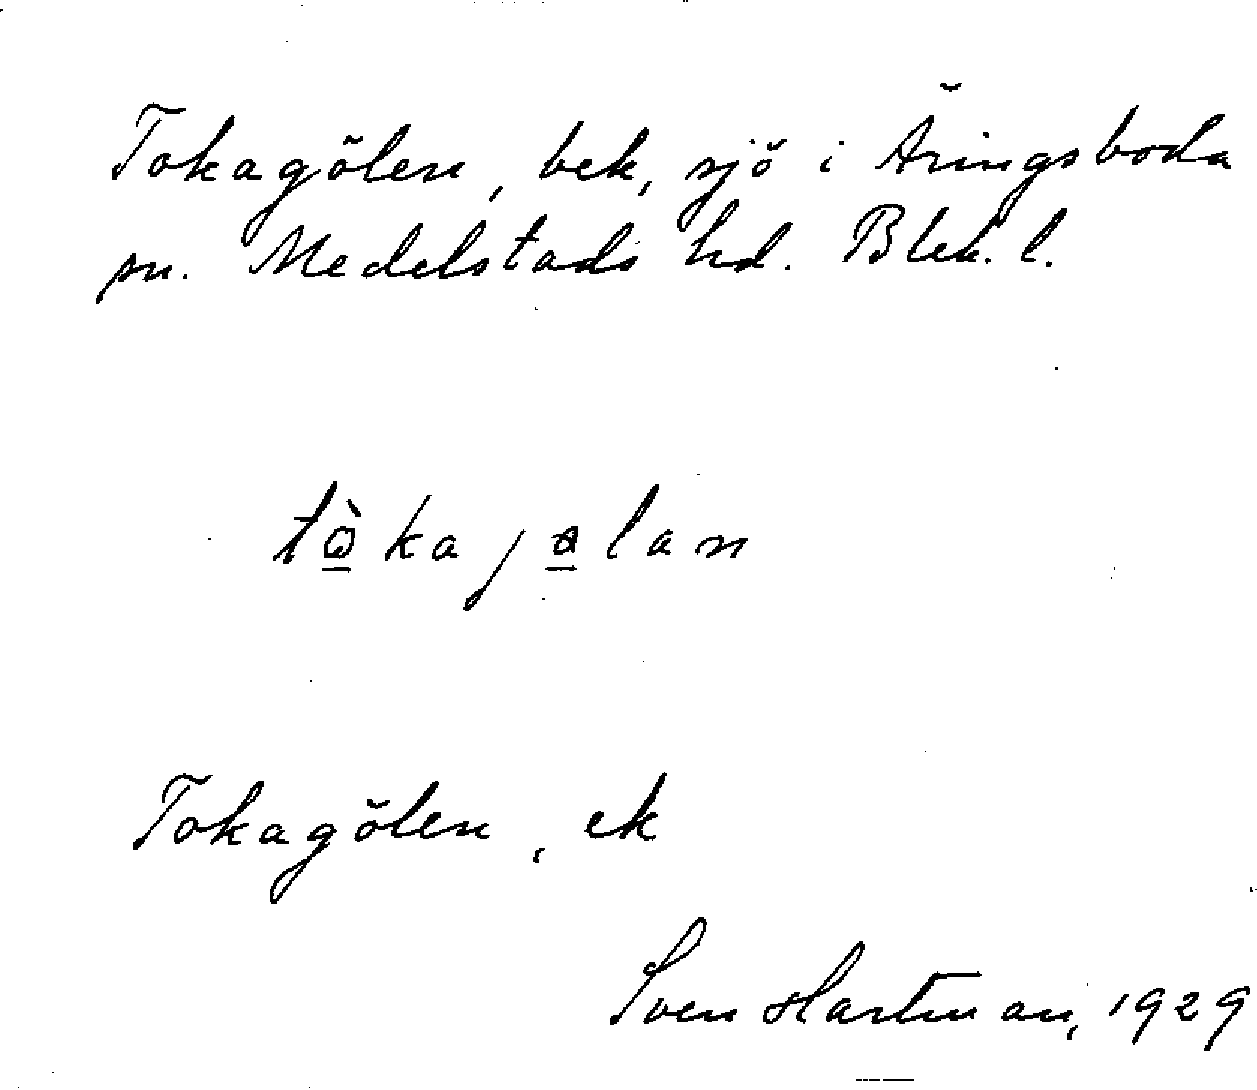 Tokagölen, bek, sjö i Åringsboda
sn. Medelstads hd. Blek. l.
tòkajɵlan
Tokagölen, ek
Sven Hartman, 1929